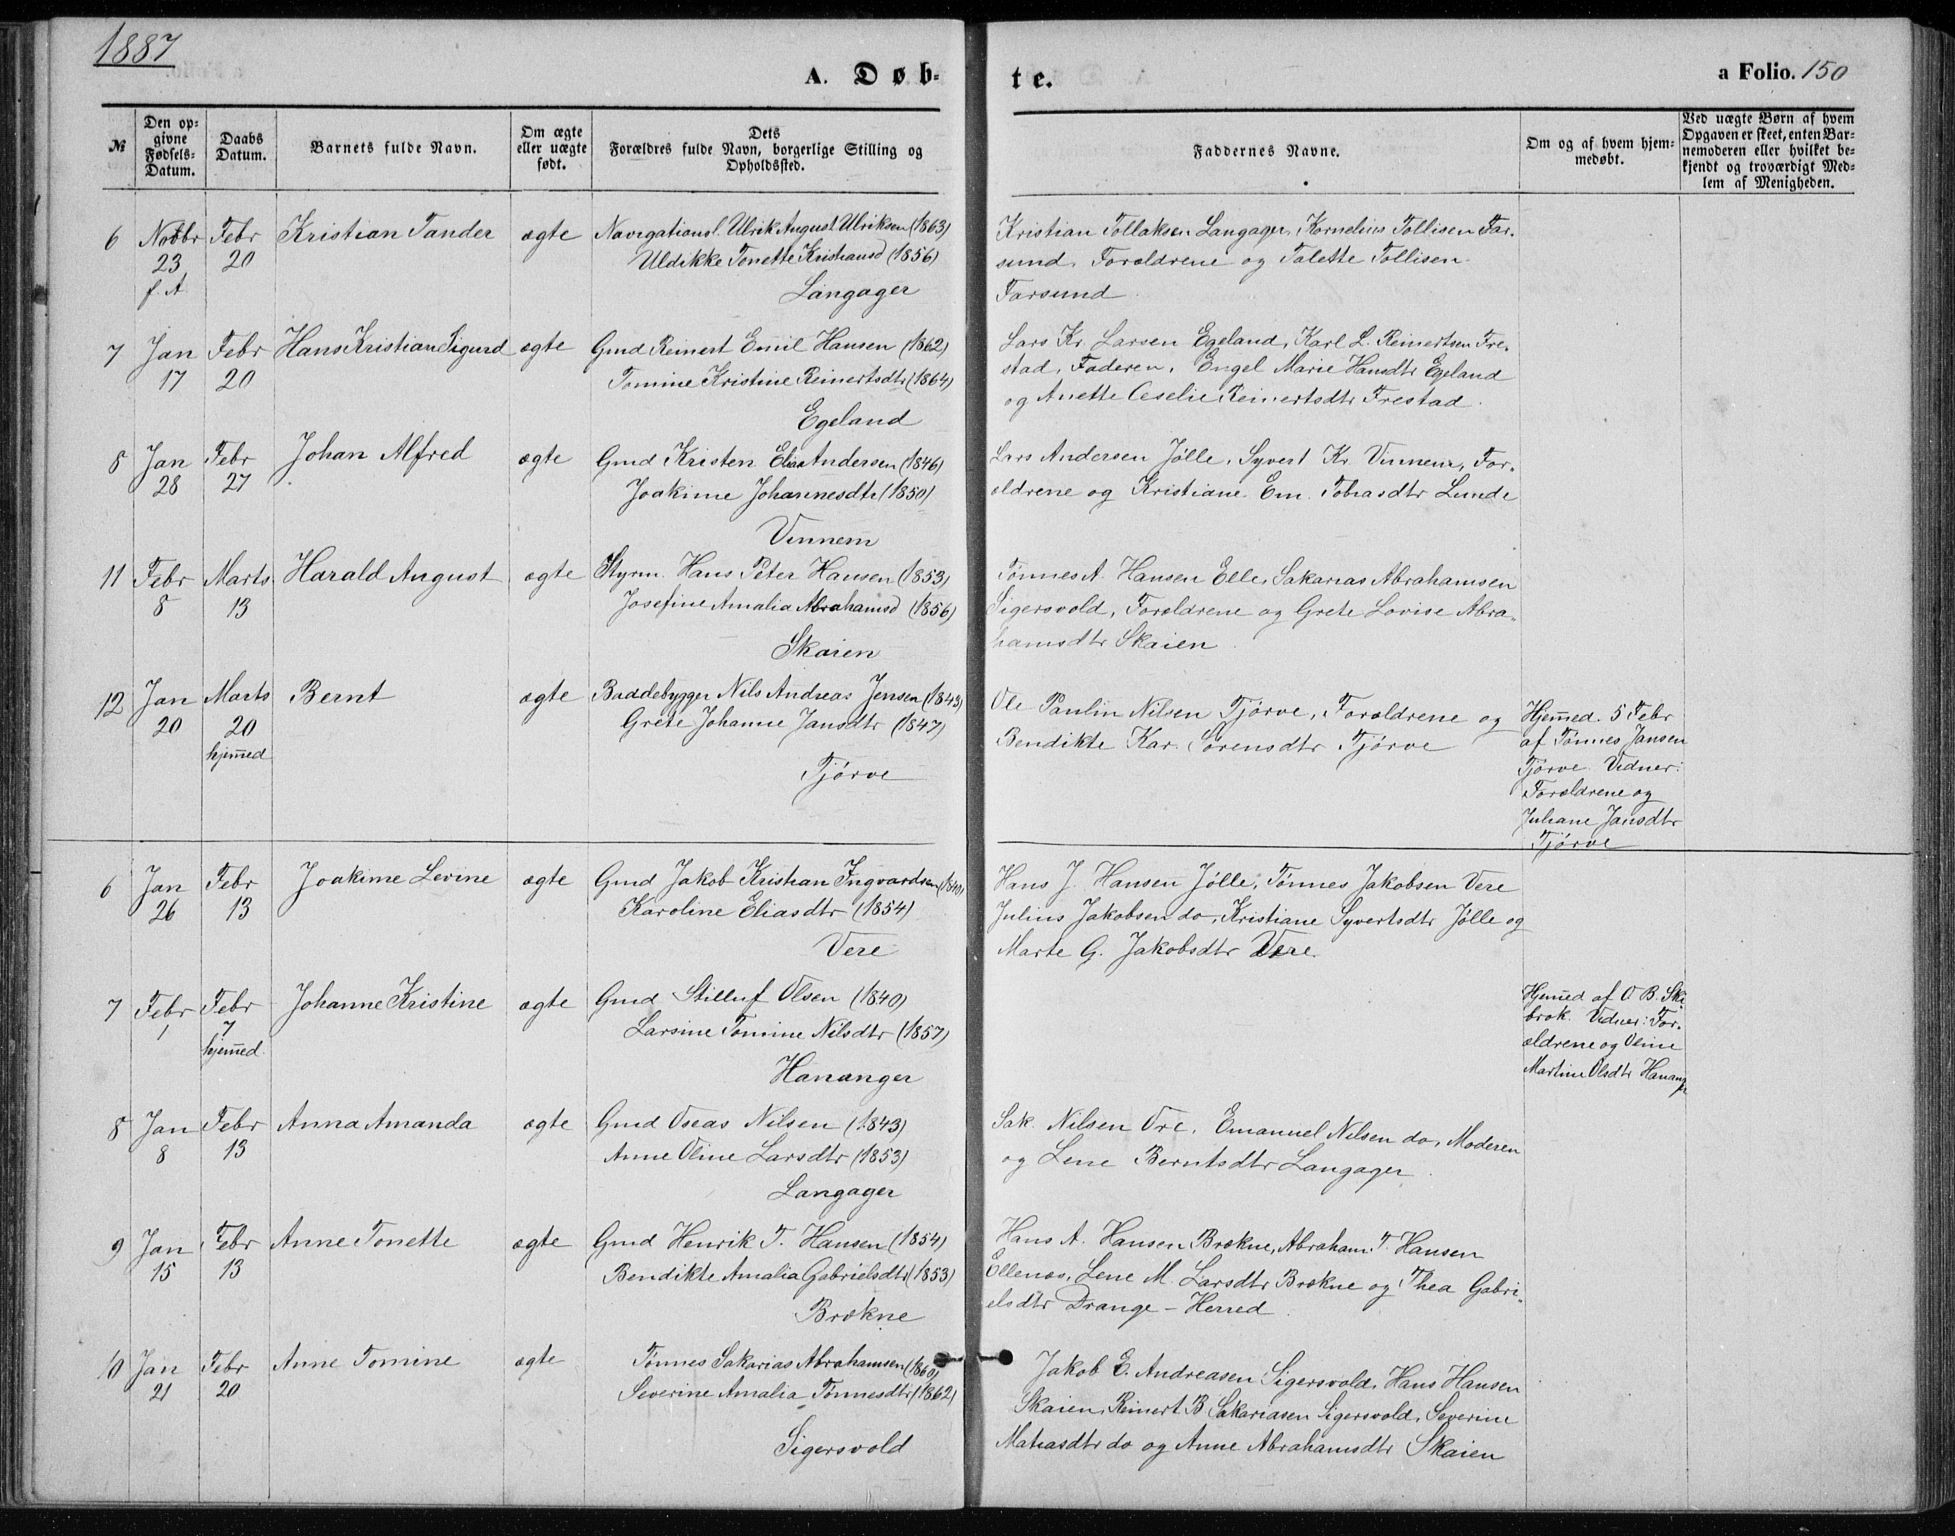 1887
A. Døb-
te.
a Folio. 150
№
Den op-
givne
Fødsels-
Datum.
Daabs
Datum.
Barnets fulde Navn.
Om ægte
eller uægte
født.
Dets
Forældres fulde Navn, borgerlige Stilling og
Opholdssted.
Faddernes Navne.
Om og af hvem hjem-
medøbt.
Ved uægte Børn af hvem
Opgaven er skeet, enten Bar-
nemoderen eller hvilket be-
kjendt og troværdigt Med-
lem af Menigheden.
6 Novbr Febr Kristian Tander ægte Navigationsl. Ulrik August Ulriksen (1863) Kristian Tollaksen Langager, Kornelius Tollisen Far-
23 20 Uldikke Tonette Kristiansd (1856) sund, Forældrene og Talette Tollisen
f. A Langager Farsund
7 Jan Febr Hans Kristian Sigurd ægte Gmd Reinert Emil Hansen (1862) Lars Kr. Larsen Egeland, Karl L. Reinertsen Fre-
17 20 Tomine Kristine Reinertsdtr (1864) stad, Faderen, Engel Marie Hansdtr Egeland
Egeland og Anette Ceselie Reinertsdtr Frestad.
8 Jan Febr Johan Alfred ægte Gmd Kristen Elias Andersen (1846) Lars Andersen Jølle, Syvert Kr. Vinnem, For-
28 27 Joakime Johannesdtr (1850) ældrene og Kristiane Em. Tobiasdtr Lunde
Vinnem
11 Febr Marts Harald August ægte Styrm. Hans Peter Hansen (1853) Tønnes A. Hansen Elle, Sakarias Abrahamsen
8 13 Josefine Amalia Abrahamsd (1856) Sigersvold, Forældrene og Grete Lovise Abra-
Skaien hamsdtr Skaien
12 Jan Marts Bernt ægte Baadebygger Nils Andreas Jensen (1843) Ole Paulin Nilsen Tjørve, Forældrene og Hjemmed. 5 Febr
20 20 Grete Johanne Jansdtr (1847) Bendikte Kar. Sørensdtr Tjørve af Tønnes Jansen
hjemmed Tjørve Tjørve. Vidner:
Forældrene og
Juliane Jansdtr
Tjørve
6 Jan Febr Joakime Levine ægte Gmd Jakob Kristian Ingvardsen Hans J. Hansen Jølle, Tønnes Jakobsen Vere
26 13 Karoline Eliasdtr (1854) Julius Jakobsen do, Kristiane Syvertsdtr Jølle og
Vere Marte G. Jakobsdtr Vere.
7 Febr Febr Johanne Kristine ægte Gmd Stilluf Olsen (1840) Hjemmed af O. B. Ski-
1 7 Larsine Tomine Nilsdtr (1857) brok. Vidner: For-
hjemmed Hananger ældrene og Oline
Martine Olsdtr Hananger
8 Jan Febr Anna Amanda ægte Gmd Oseas Nilsen (1843) Sak. Nilsen Ore, Emanuel Nilsen do, Moderen
8 13 Anne Oline Larsdtr (1853) og Lene Berntsdtr Langager
Langager
9 Jan Febr Anne Tonette ægte Gmd Henrik T. Hansen (1854) Hans A. Hansen Brækne, Abraham T. Hansen
15 13 Bendikte Amalia Gabrielsdtr (1853) Ellenæs, Lene M. Larsdtr Brækne og Thea Gabri-
Brækne elsdtr Drange - Herred
10 Jan Febr Anne Tomine ægte Tønnes Sakarias Abrahamsen (1860) Jakob E. Andreasen Sigersvold, Hans Hansen
21 20 Severine Amalia Tønnesdtr (1862) Skaien, Reinert B Sakariasen Sigersvold, Severine
Sigersvold Matiasdtr do og Anne Abrahamsdtr Skaien